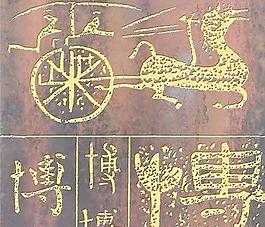 博
博
博